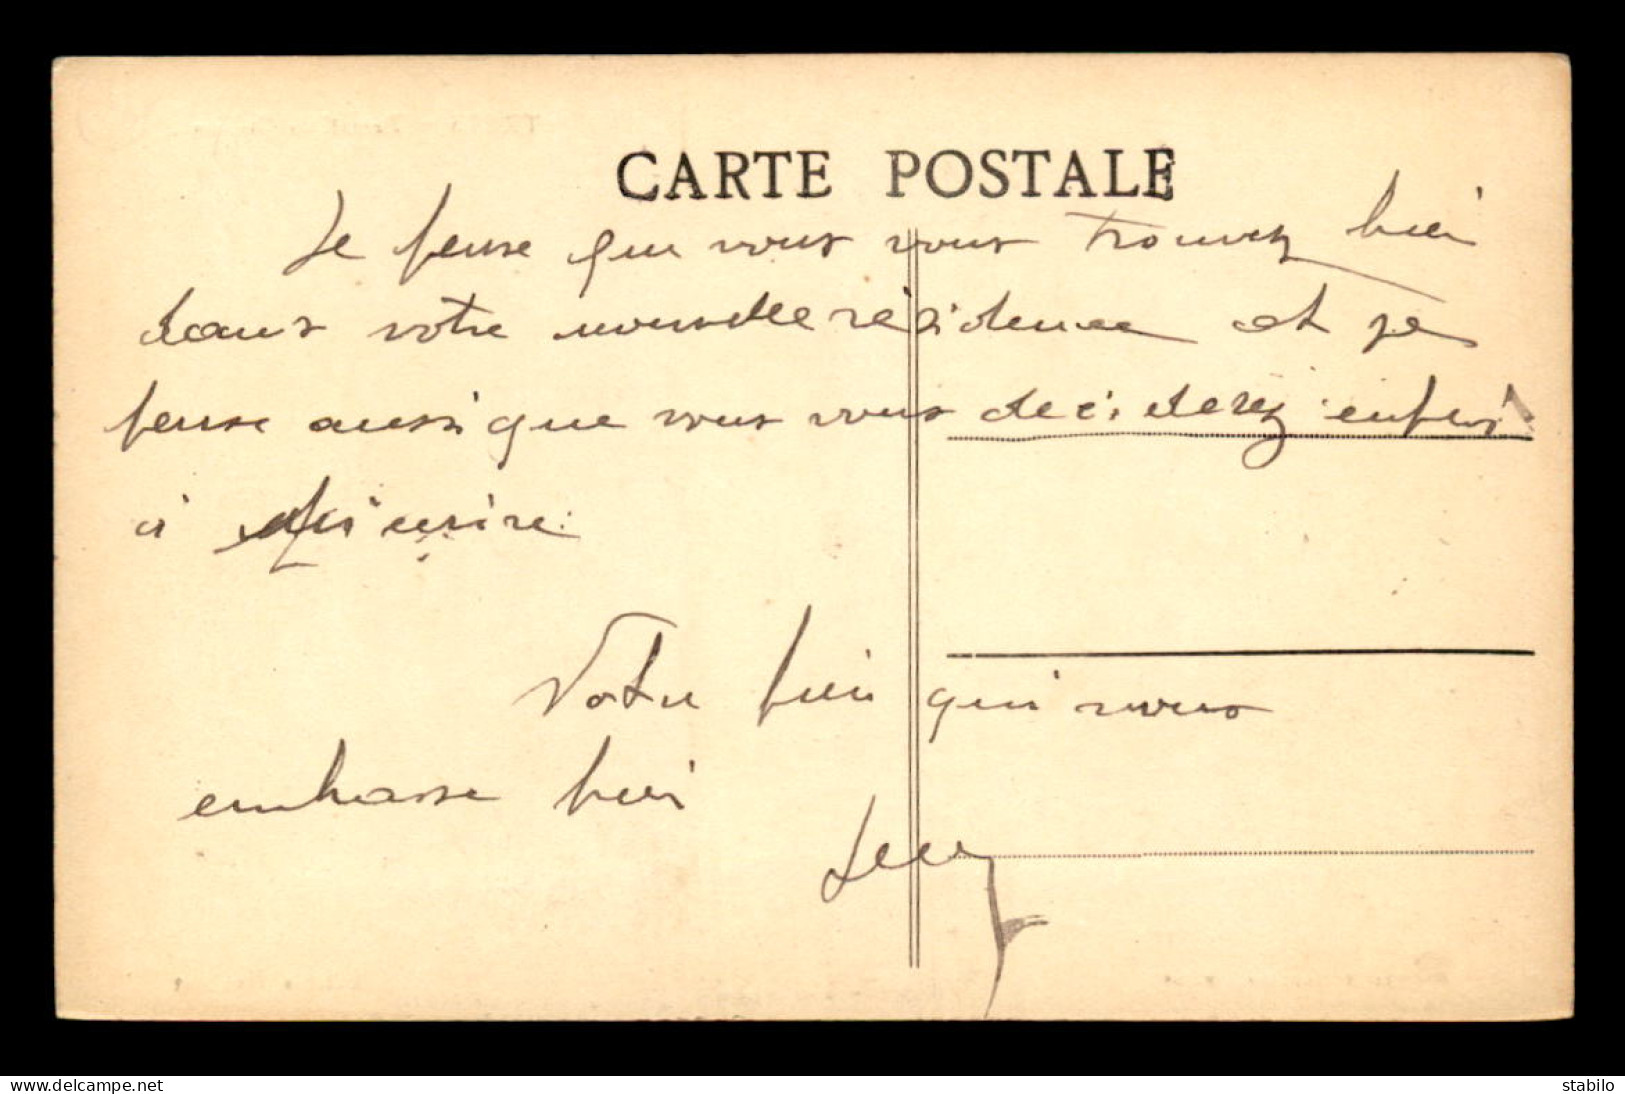 CARTE POSTALE
Je pense que vous vous trouvez bien
dans votre nouvelle résidence et je
pense aussi que vous vous deciderez enfin
à m'écrire.
Votre fien qui vous
embrasse bien
Lucy
delcampe.net
stabilo